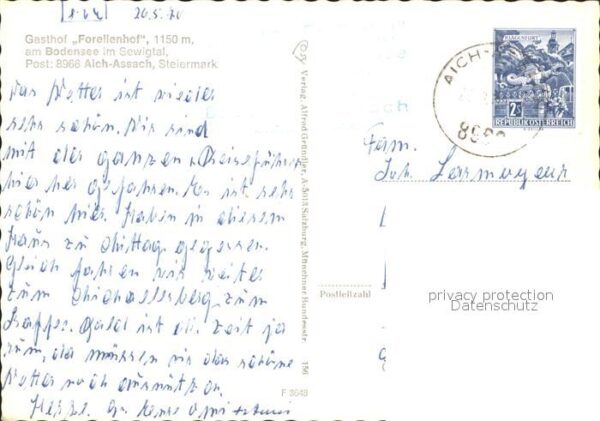 20.5.70
Gasthof „Forellenhof", 1150 m,
am Bodensee im Sewigtal,
Post: 8966 Aich-Assach, Steiermark
Das Wetter ist wieder
sehr schön. Wir sind
mit der ganzen
hier her gefahren. Es ist sehr
schön hier. Haben in diesem
Haus zu Mittag gegessen.
Gleich fahren wir weiter
zum Michaelerberg zum
Kaffee. Bald ist die Zeit
um, da müssen wir das schöne
Wetter noch ausnützen.
Herzl.
Verlag Alfred Gründler, A 5013 Salzburg, Münchner Bundesstr. 156
F 3648
KLAGENFURT
2 S
REPUBLIK ÖSTERREICH
AICH-
Fam.
Joh.
Postleitzahl
privacy protection
Datenschutz